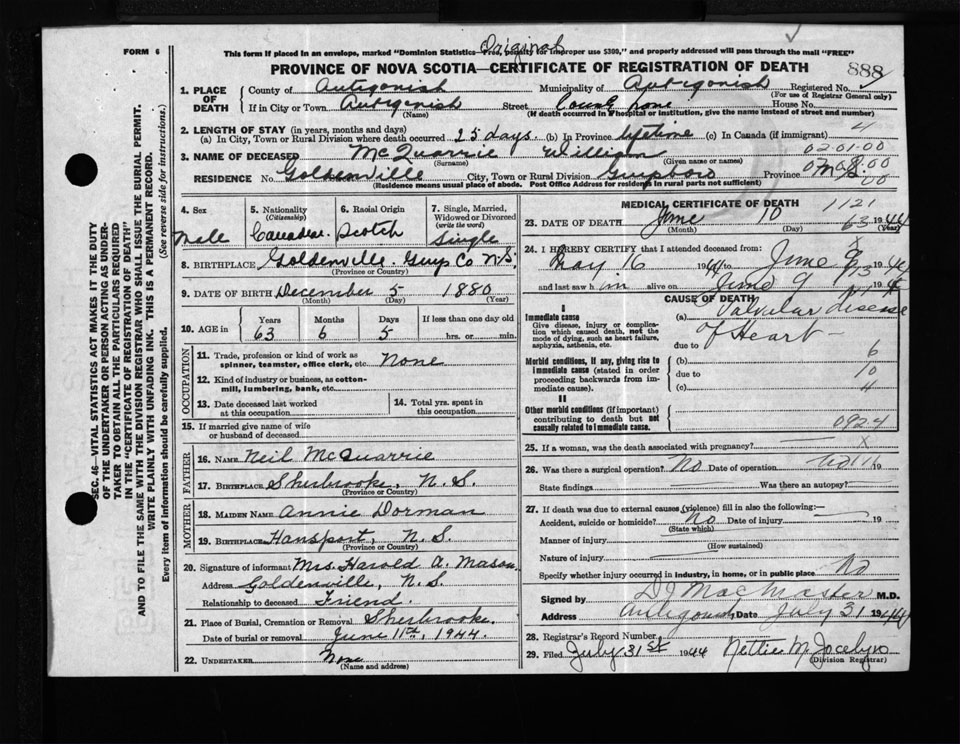 Original
FORM 6
This form if placed in an envelope, marked "Dominion Statistics—Free, penalty for improper use $300," and properly addressed will pass through the mail "FREE"
PROVINCE OF NOVA SCOTIA—CERTIFICATE OF REGISTRATION OF DEATH
888
1. PLACE OF DEATH
County of Antigonish Municipality of Antigonish Registered No.
(For use of Registrar General only)
If in City or Town Antigonish Street House No.
(Name) (If death occurred in hospital or institution, give name instead of street and number)
2. LENGTH OF STAY (in years, months and days)
(a) In City, Town or Rural Division where death occurred 25 days (b) In Province lifetime (c) In Canada (if immigrant) 4
02.01.00
3. NAME OF DECEASED McQuarrie William
(Surname) (Given name or names)
RESIDENCE No. Goldenville City, Town or Rural Division Guysboro Province N.S.
(Residence means usual place of abode. Post Office Address for residents in rural parts not sufficient)
4. Sex Male
5. Nationality (Citizenship) Canadian
6. Racial Origin Scotch
7. Single, Married, Widowed or Divorced (write the word) Single
8. BIRTHPLACE Goldenville Guys Co N.S.
(Province or Country)
9. DATE OF BIRTH December 5 1880
(Month) (Day) (Year)
10. AGE in Years Months Days If less than one day old
63 6 5 hrs. or min.
OCCUPATION
11. Trade, profession or kind of work as spinner, teamster, office clerk, etc. None
12. Kind of industry or business, as cotton-mill, lumbering, bank, etc.
13. Date deceased last worked at this occupation
14. Total yrs. spent in this occupation
15. If married give name of wife or husband of deceased
FATHER
16. NAME Neil McQuarrie
17. BIRTHPLACE Sherbrooke, N.S.
(Province or Country)
MOTHER
18. MAIDEN NAME Annie Dorman
19. BIRTHPLACE Hansport, N.S.
(Province or Country)
20. Signature of informant Mrs. Harold A. Mason
Address Goldenville, N.S.
Relationship to deceased Friend.
21. Place of Burial, Cremation or Removal Sherbrooke.
Date of burial or removal June 11th, 1944.
22. UNDERTAKER None
(Name and address)
MEDICAL CERTIFICATE OF DEATH
1121
23. DATE OF DEATH June 10 63 1944
(Month) (Day) (Year)
24. I HEREBY CERTIFY that I attended deceased from
May 16 1944 to June 9 1944
and last saw him alive on June 9 194
CAUSE OF DEATH
I
Immediate cause
Give disease, injury or complication which caused death, not the mode of dying, such as heart failure, asphyxia, asthenia, etc.
(a) Valvular disease of Heart
due to
Morbid conditions, if any, giving rise to immediate cause (stated in order proceeding backwards from immediate cause).
(b) 6
due to 10
(c) 4
II
Other morbid conditions (if important) contributing to death but not causally related to immediate cause.
092.4
25. If a woman, was the death associated with pregnancy? x
26. Was there a surgical operation? No Date of operation 19
State findings Was there an autopsy?
27. If death was due to external causes (violence) fill in also the following:—
Accident, suicide or homicide? No Date of injury 19
(State which)
Manner of injury
(How sustained)
Nature of injury
Specify whether injury occurred in industry, in home, or in public place No
Signed by D J MacMaster M.D.
Address Antigonish Date July 31 1944
28. Registrar's Record Number
29. Filed July 31st 1944 Nettie M. Jocelyn
(Division Registrar)
SEC. 46—VITAL STATISTICS ACT MAKES IT THE DUTY
OF THE UNDERTAKER OR PERSON ACTING AS UNDER-
TAKER TO OBTAIN ALL THE PARTICULARS REQUIRED
IN THE "CERTIFICATE OF REGISTRATION OF DEATH"
AND TO FILE THE SAME WITH THE DIVISION REGISTRAR WHO SHALL ISSUE THE BURIAL PERMIT.
WRITE PLAINLY WITH UNFADING INK. THIS IS A PERMANENT RECORD.
Every item of information should be carefully supplied. (See reverse side for instructions.)